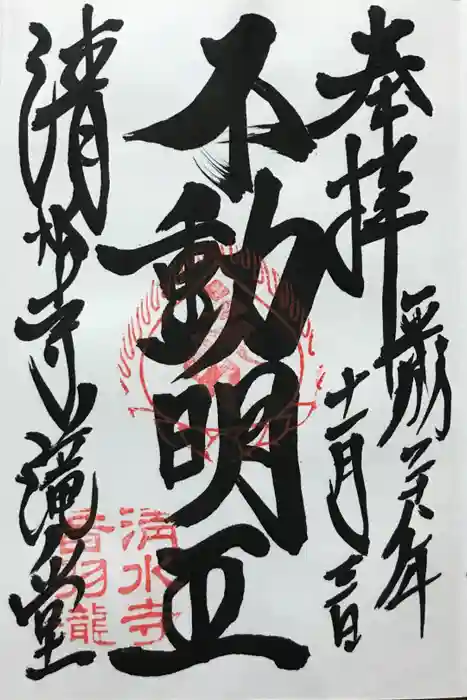 奉拝
年
十一月
日
不動明王
清水寺滝堂
清水寺
音羽瀧